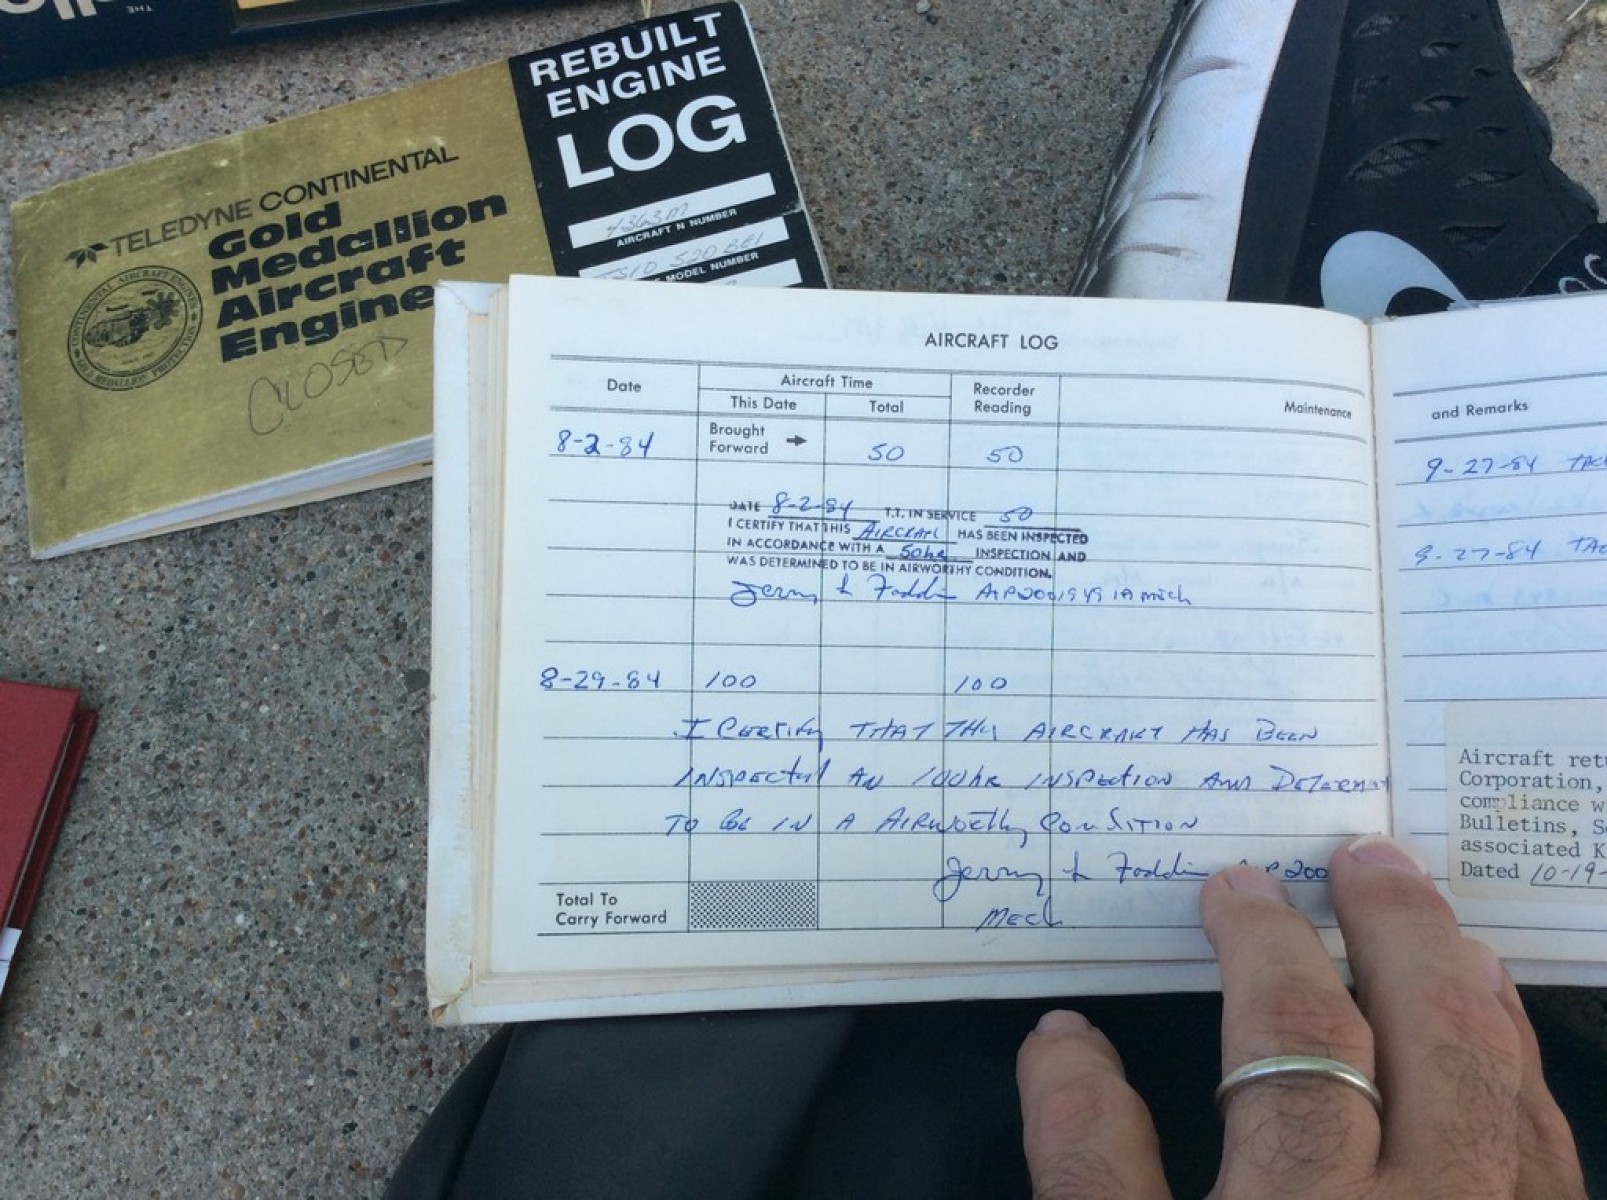 THE
REBUILT
ENGINE
LOG
TELEDYNE CONTINENTAL
Gold
Medallion
Aircraft
Engine
CLOSED
4363M
AIRCRAFT N NUMBER
TSIO 520 BE1
MODEL NUMBER
AIRCRAFT LOG
Date
Aircraft Time
This Date
Total
Recorder
Reading
Maintenance
and Remarks
8-2-84
Brought
Forward
50
50
9-27-84
DATE 8-2-84 T.T. IN SERVICE 50
I CERTIFY THAT THIS AIRCRAFT HAS BEEN INSPECTED
IN ACCORDANCE WITH A 50hr INSPECTION AND
WAS DETERMINED TO BE IN AIRWORTHY CONDITION.
Jerry L Mech
9-27-84
8-29-84 100 100
I Certify THAT THIS AIRCRAFT HAS BEEN
INSPECTED AN 100hr INSPECTION AND
TO BE IN A AIRWORTHY CONDITION
Jerry L
Mech
Total To
Carry Forward
Aircraft
Corporation,
compliance
Bulletins,
associated
Dated 10-19-